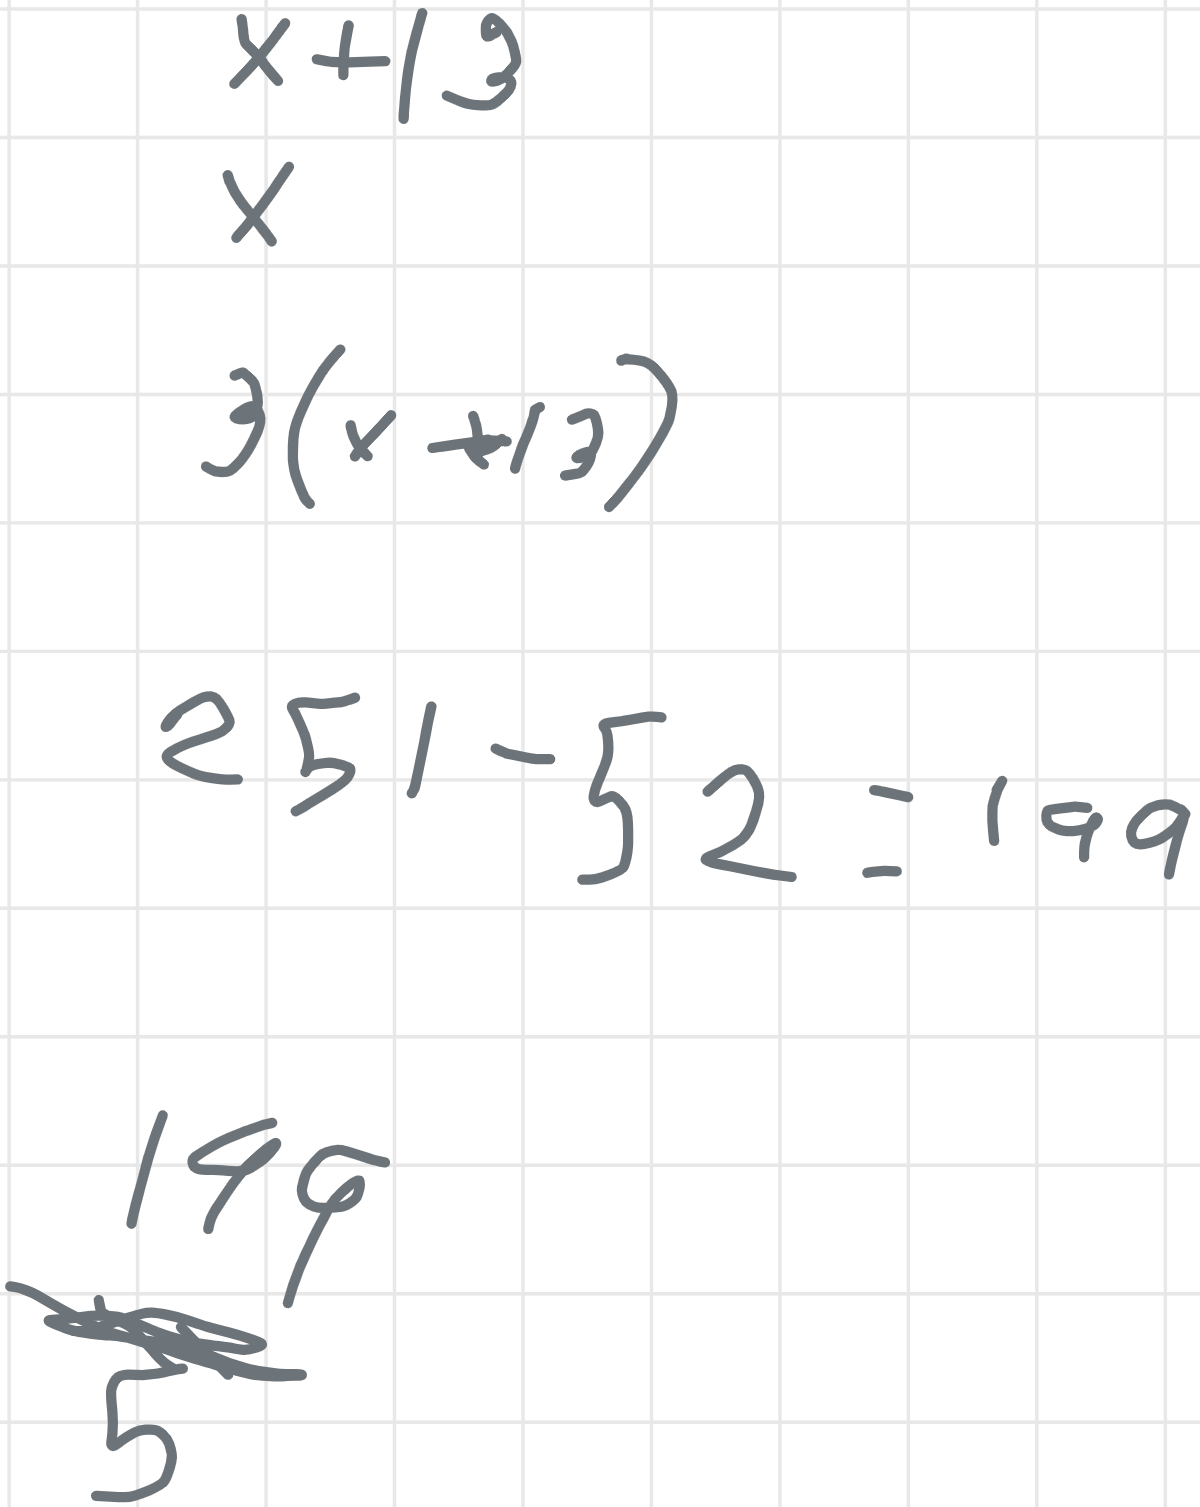 x+13
x
3(x+13)
251-52=199
199
5